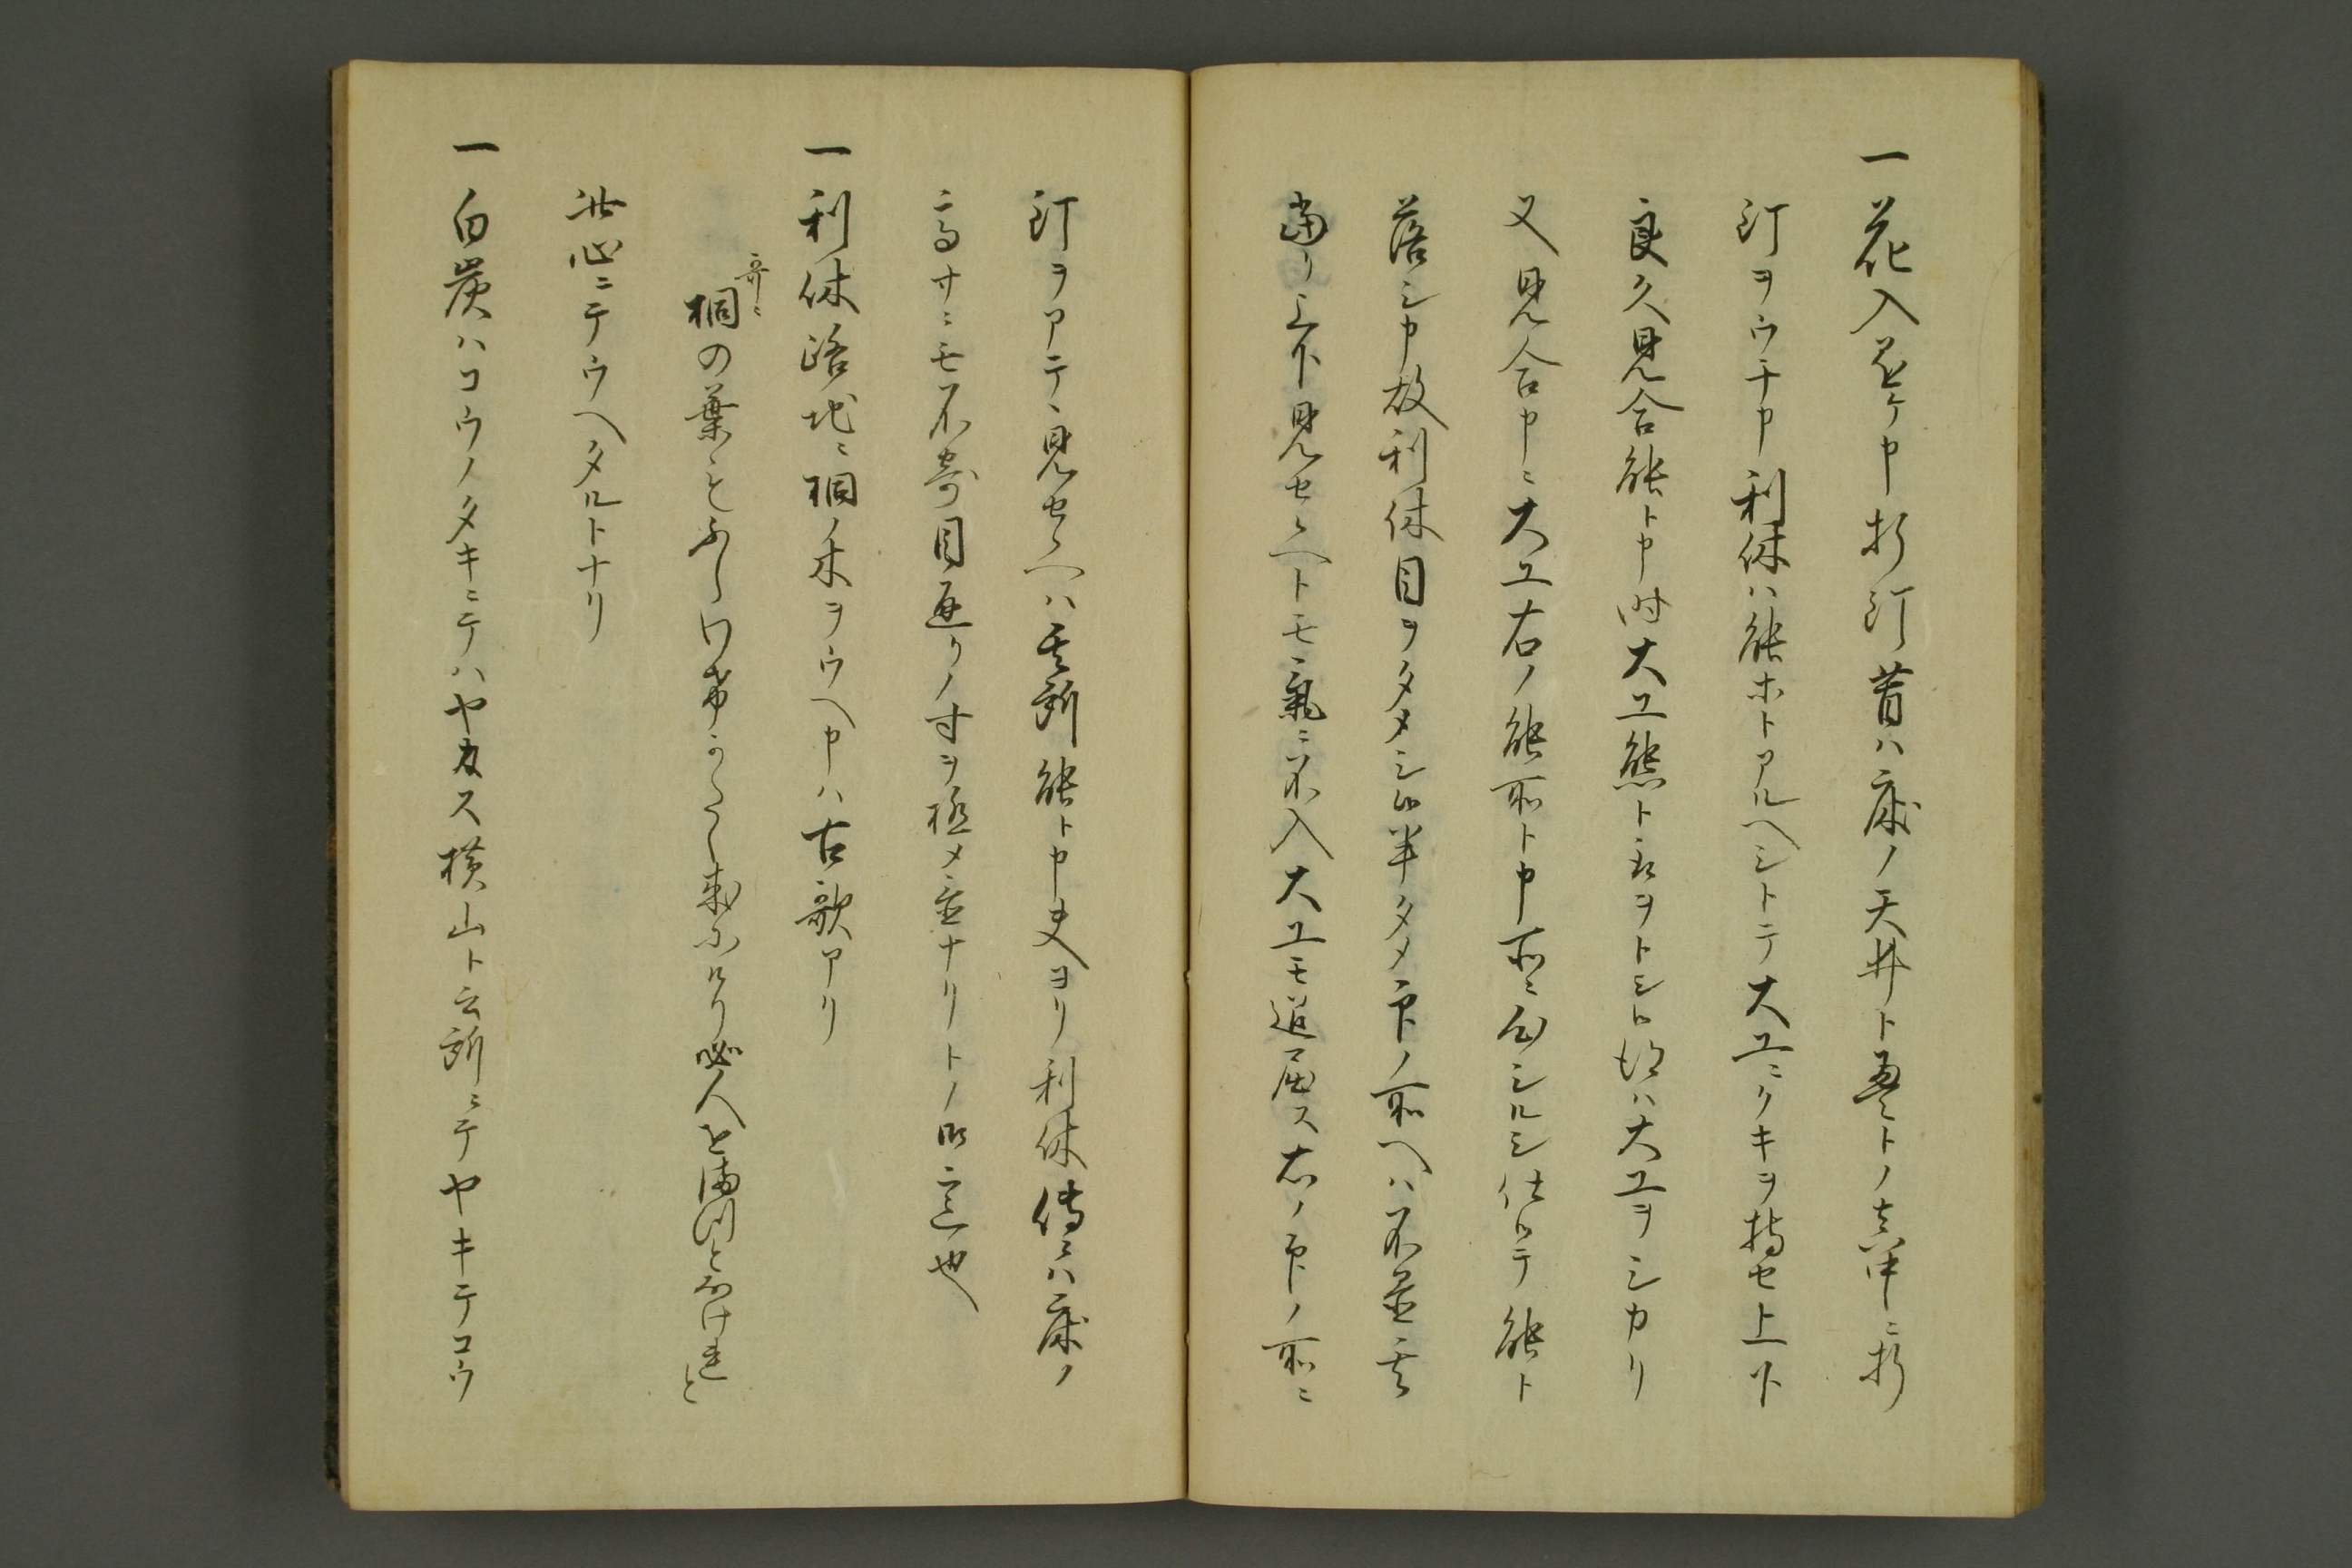 一花入ヲカケ申折釘昔ハ床ノ天井ト畳トノ真中ニ折
釘ヲウチ申利休ハ能ホトアルヘシトテ大工ニクキヲ持セ上下
良久見合能ト申時大工態トクキヲトシ候ハ大工ヲシカリ
又見合申ニ大工右ノ能所ト申所ニ シルシ仕候テ能ト
落シ申故利休目ヲタメシ候半タメ 印ノ所ヘハ不並云
当リ上下見セ候ヘトモ氣ニ不入大工モ退屈ス右ノ印ノ所ニ
釘ヲアテ、見セ候ヘハ其所能ト申夫ヨリ利休傳ニハ床ノ
高サニモ不寄目通リノ寸ヲ極メ置ナリトノ 也
一利休路地ニ桐ノ木ヲウヘ申ハ古歌アリ
哥ニ
桐の葉もふみ分かたく成にけり必人を満つとなけれと
此心ニテウヘタルトナリ
一白炭ハコウノタキニテハヤカス横山ト云所ニテヤキテコウ